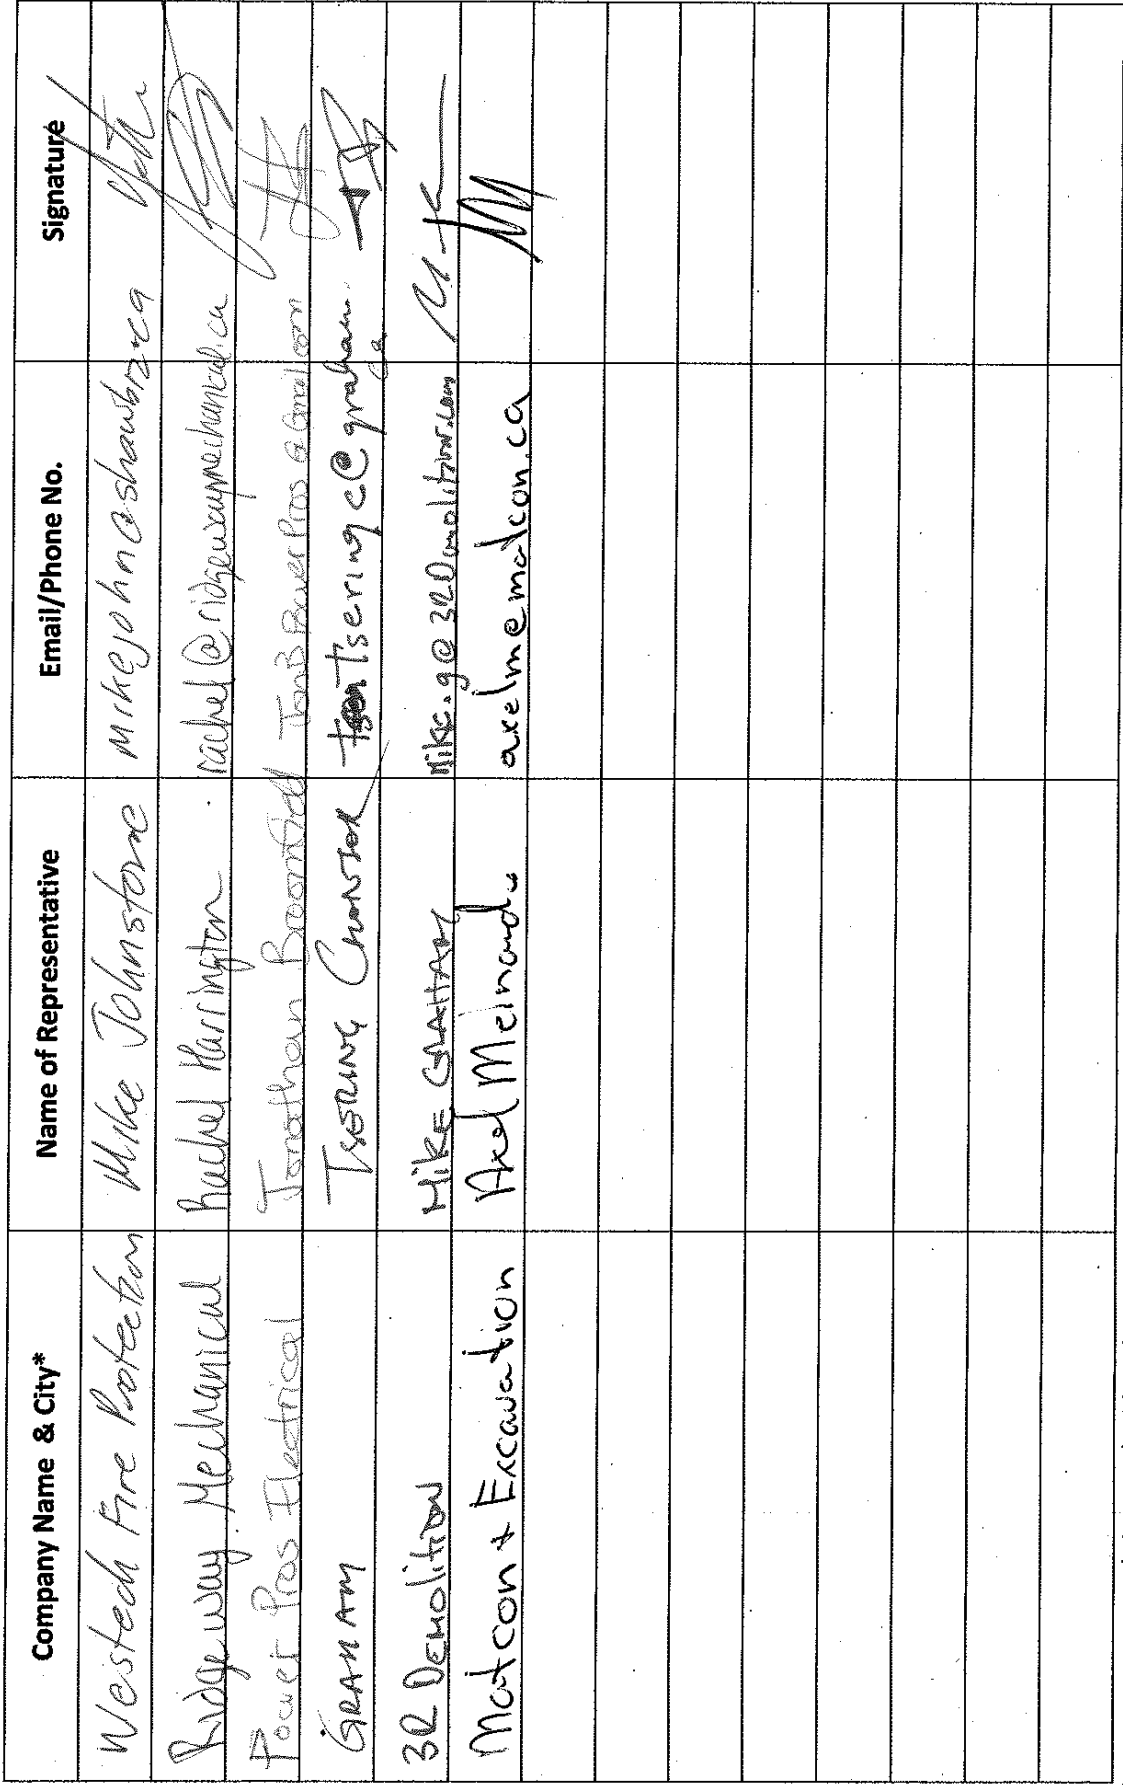 Company Name & City* Name of Representative Email/Phone No. Signature
Westech Fire Protection Mike Johnstone mikejohn@shawbiz.ca
Ridgeway Mechanical Rachel Harrington rachel@ridgewaymechanical.ca
Power Pros Electrical Jonathan Broomfield PowerPros@Gmail.com
GRAHAM TSERING tseringc@graham.ca
3R DEMOLITION MIKE GRAHAM Mike.g@3RDemolition.com
Matcon + Excavation Axel axelm@matcon.ca